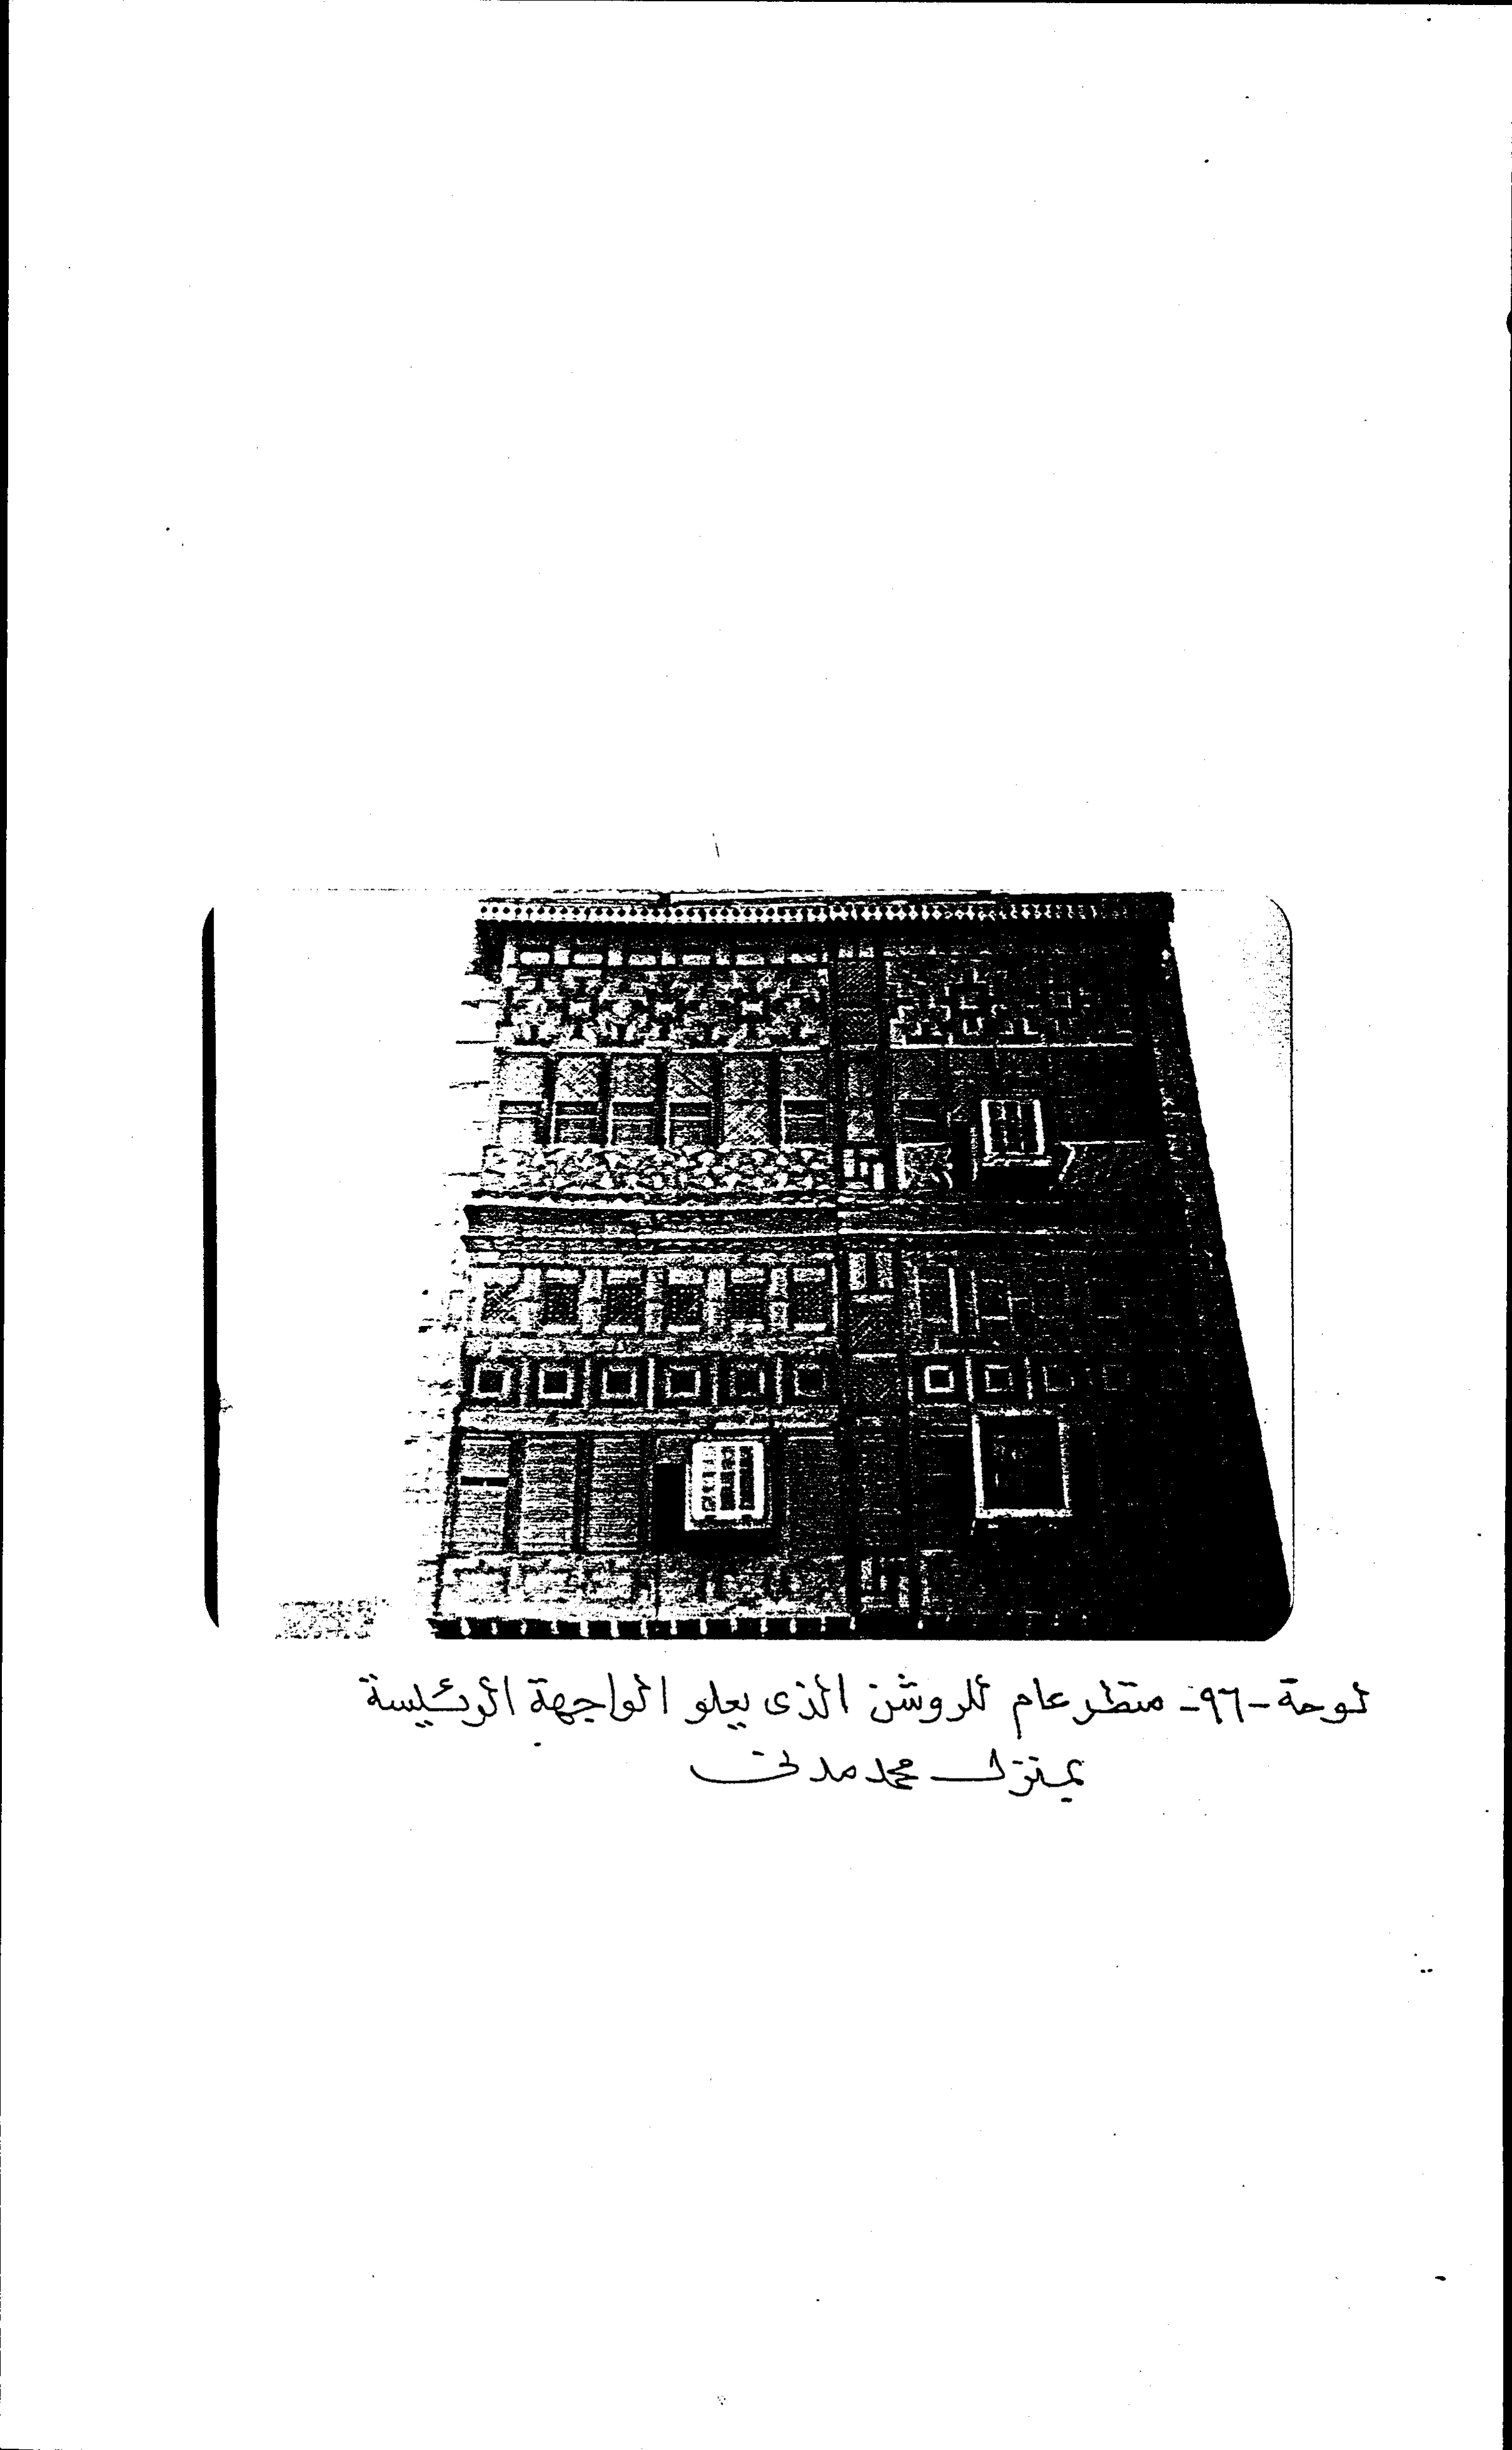 لوحة -٩٦- منظر عام للروشن الذى يعلو الواجهة الرئيسة
بمنزل محمد مدنى